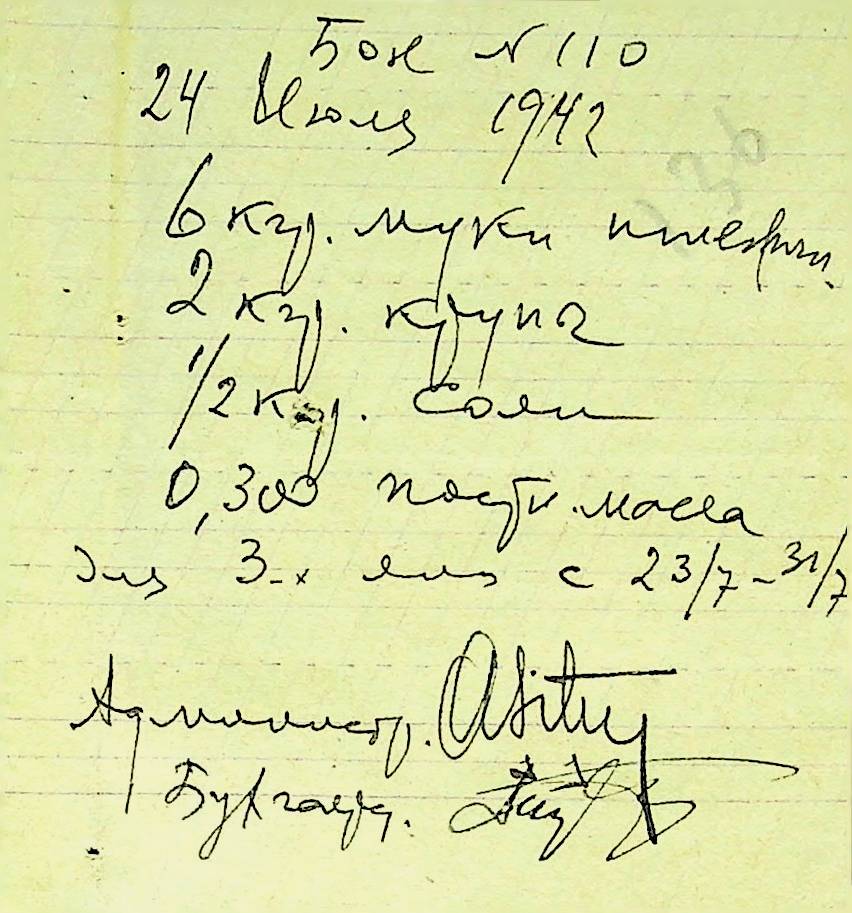 Бон N 110
24 Июля 1942
6 кгр. муки пшеничн.
2 кгр. крупа
1/2 кгр. соли
0,300 постн. масла
для 3-х лиц с 23/7-31/7
Администр.
Бухгалтер.